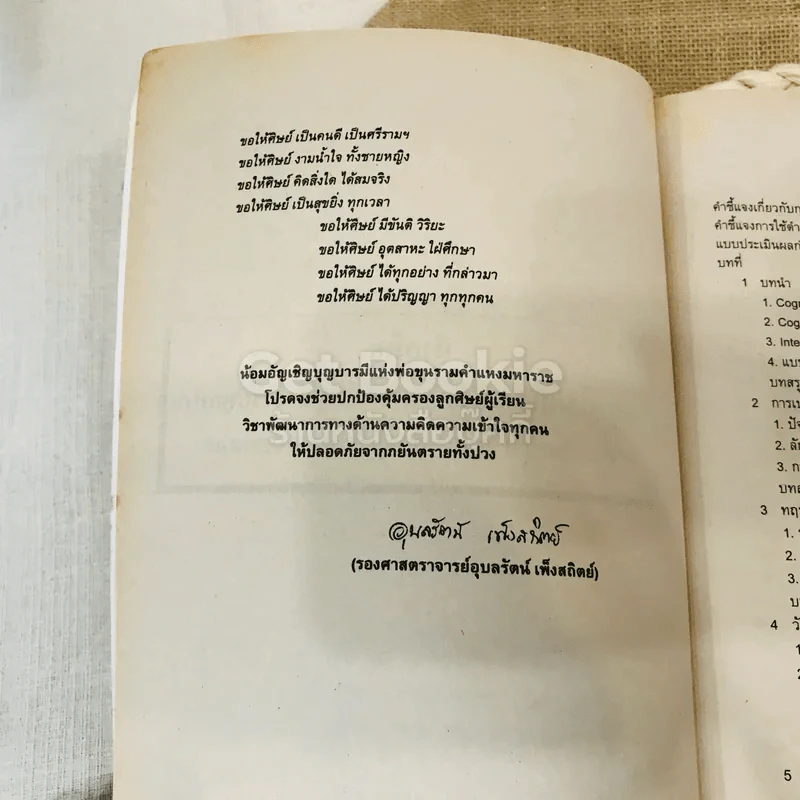 ขอให้ศิษย์ เป็นคนดี เป็นศรีรามฯ
ขอให้ศิษย์ งามน้ำใจ ทั้งชายหญิง
ขอให้ศิษย์ คิดสิ่งใด ได้สมจริง
ขอให้ศิษย์ เป็นสุขยิ่ง ทุกเวลา
ขอให้ศิษย์ มีขันติ วิริยะ
ขอให้ศิษย์ อุตสาหะ ใฝ่ศึกษา
ขอให้ศิษย์ ได้ทุกอย่าง ที่กล่าวมา
ขอให้ศิษย์ ได้ปริญญา ทุกทุกคน
Get Bookie
ร้านหนังสือบุ๊คกี้
น้อมอัญเชิญบุญบารมีแห่งพ่อขุนรามคำแหงมหาราช
โปรดจงช่วยปกป้องคุ้มครองลูกศิษย์ผู้เรียน
วิชาพัฒนาการทางด้านความคิดความเข้าใจทุกคน
ให้ปลอดภัยจากภยันตรายทั้งปวง
อุบลรัตน์ เพ็งสถิตย์
(รองศาสตราจารย์อุบลรัตน์ เพ็งสถิตย์)
คำชี้แจงเกี่ยวกับ
คำชี้แจงการใช้
แบบประเมินผล
บทที่
1 บทนำ
1.
2.
3.
4.
2
1.
2.
3.
3
1.
2.
3.
4
5